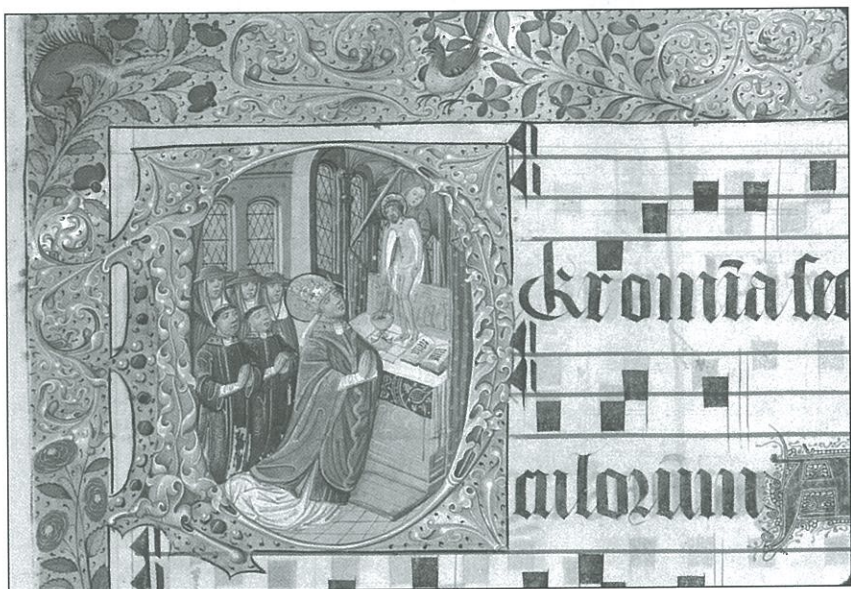 PEr om̄ia sec
culorum A